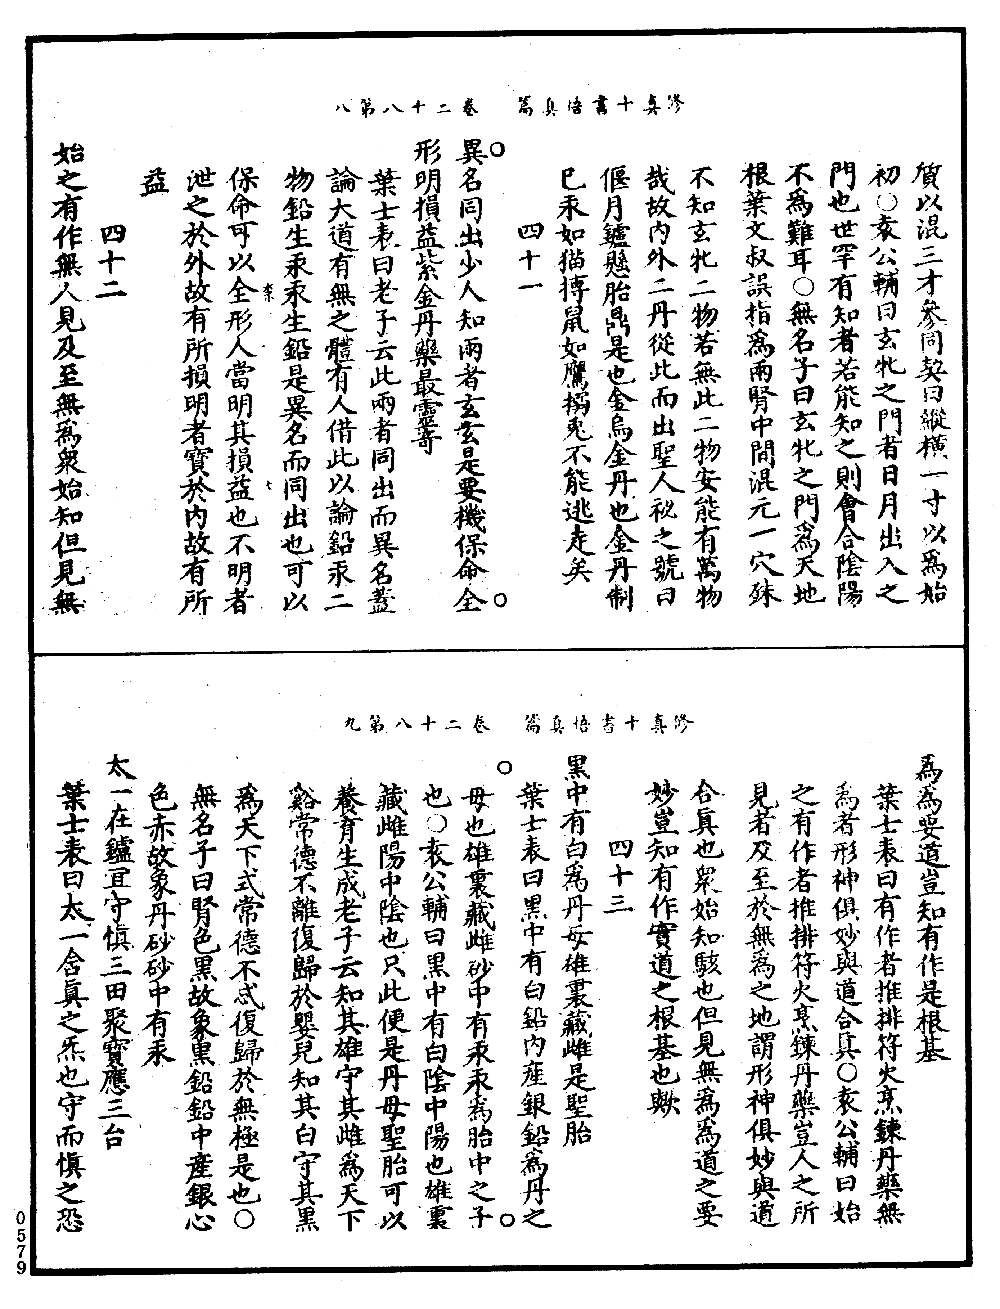 修真十書悟真篇 卷二十八第八
質以混三才參同契曰縱橫一寸以爲始
初○袁公輔曰玄牝之門者日月出入之
門也世罕有知者若能知之則會合陰陽
不爲難耳○無名子曰玄牝之門爲天地
根葉文叔誤指爲兩腎中間混元一穴殊
不知玄牝二物若無此二物安能有萬物
哉故内外二丹從此而出聖人秘之號曰
偃月鑪懸胎鼎是也金烏金丹也金丹制
巳汞如猫捕鼠如鷹搦兎不能逃走矣
四十一
異名同出少人知兩者玄玄是要機保命全
形明損益紫金丹藥最靈竒
葉士表曰老子云此兩者同出而異名蓋
論大道有無之體有人借此以論鉛汞二
物鉛生汞汞生鉛是異名而同出也可以
保命可以全形人當明其損益也不明者
泄之於外故有所損明者寳於内故有所
益
四十二
始之有作無人見及至無爲衆始知但見無
修真十書悟真篇 卷二十八第九
爲爲要道豈知有作是根基
葉士表曰有作者推排符火烹鍊丹藥無
爲者形神俱妙與道合真○袁公輔曰始
之有作者推排符火烹鍊丹藥豈人之所
見者及至於無爲之地謂形神俱妙與道
合真也衆始知駭也但見無爲爲道之要
妙豈知有作實道之根基也歟
四十三
黑中有白爲丹母雄裏藏雌是聖胎
葉士表曰黑中有白鉛内産銀鉛爲丹之
母也雄裏藏雌砂中有汞汞爲胎中之子
也○袁公輔曰黑中有白陰中陽也雄裏
藏雌陽中陰也只此便是丹母聖胎可以
養育生成老子云知其雄守其雌爲天下
谿常德不離復歸於嬰兒知其白守其黑
爲天下式常德不忒復歸於無極是也○
無名子曰腎色黑故象黑鉛鉛中產銀心
色赤故象丹砂砂中有汞
太一在鑪宜守慎三田聚寳應三台
葉士表曰太一含眞之炁也守而慎之恐
0579